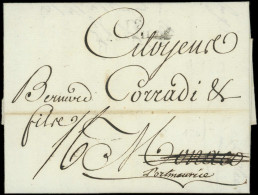 Citoyens
Bernard Corradi &
fils
Monaco
Portmaurice